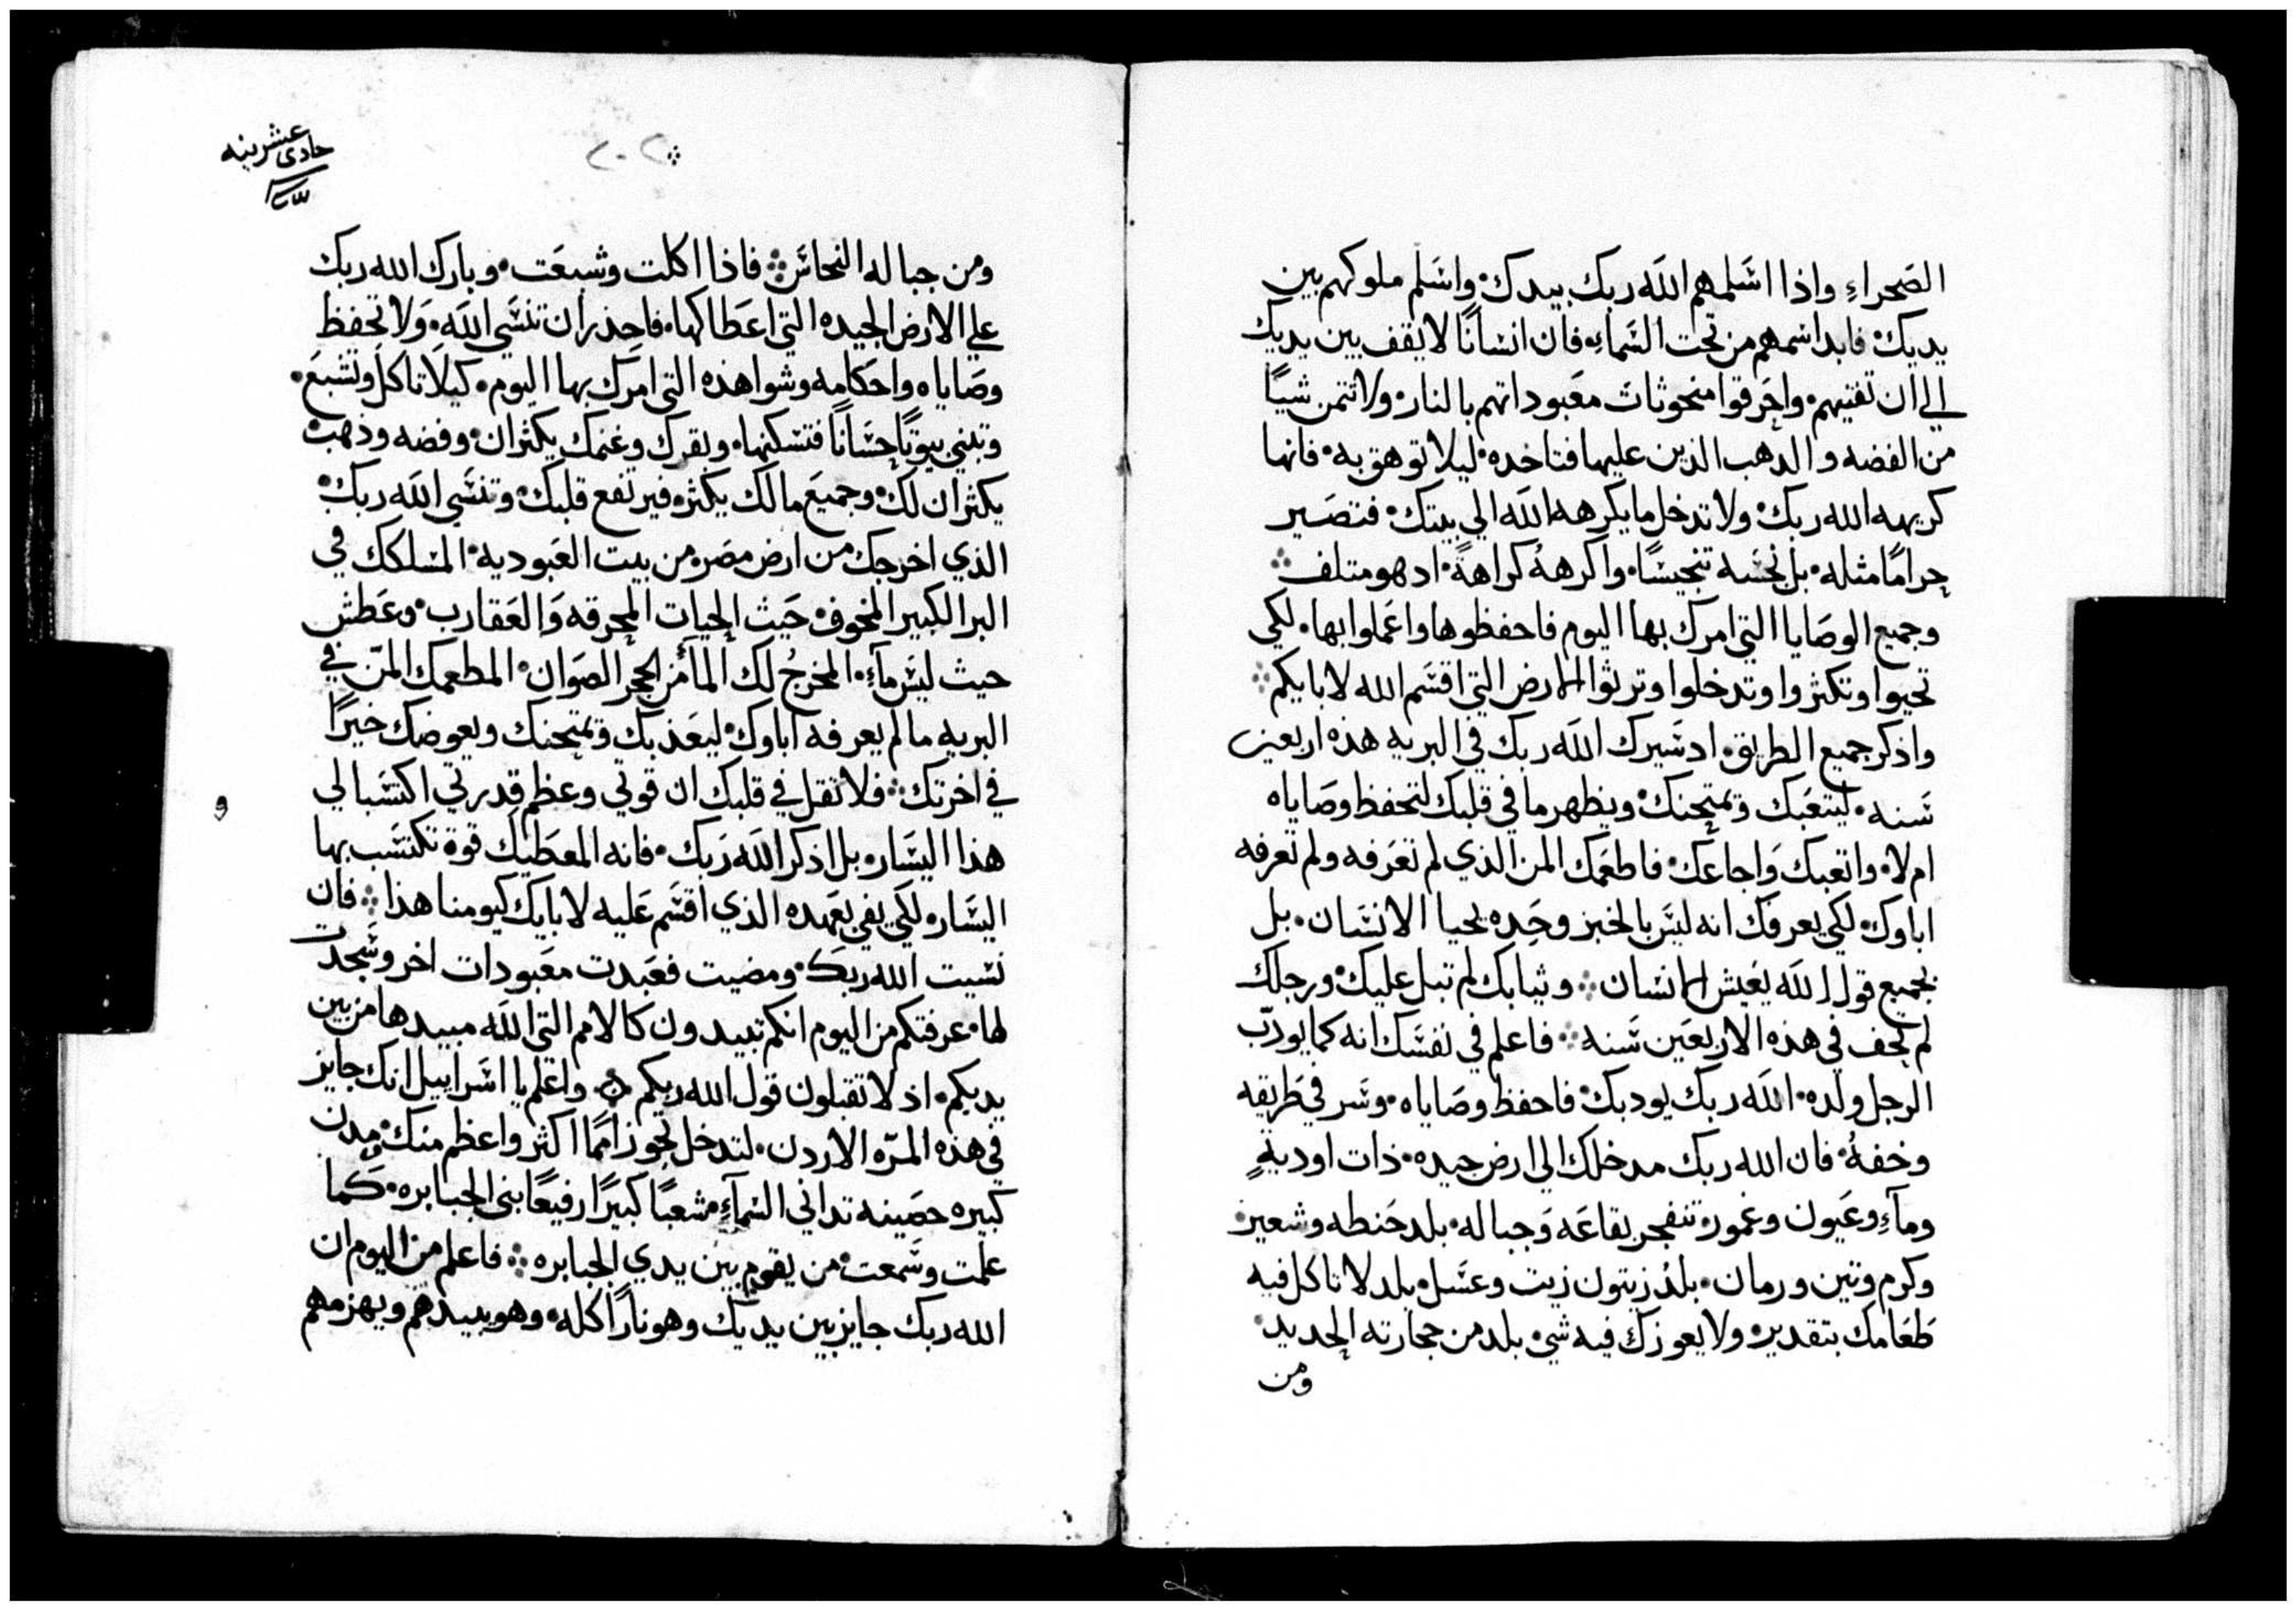 الصَحراءِ واذا اسَلمهم اللَه ربك بيدك، واسَلم ملوكهم بين
يديك، فابد اسمهم من تحت السَماءِ، فان انسَانًا لا يقف بين يديك
الي ان تفنيهم، واحَرقوا منحوتات معَبوداتهم بالنار، ولا تتمن شيًا
من الفضه والدهب الذين عليها فتاخده، ليلا توهق به، فانها
كريهه الله ربك، ولا تدخل ما يكرهه اللَه الي بيتك، فتصَير
حرامًا مثله، بل نجسَه تنجيسًا، واكرههُ كراهةً، اد هو متلف
وجميع الوصَايا التي امرك بها اليوم فاحفظوها واعَملوا بها، لكي
تحيوا وتكثروا وتدخلوا وترثوا الارض التي اقسَم الله لابايكم
واذكر جميع الطريق، اد سَيرك اللَه ربك في البريه هذه اربعين
سَنه، ليتعَبك ويمتحنك، ويظهر ما في قلبك لتحفظ وصَاياه
ام لا، واتعبك وَاجاعَك، فاطعَمك المن الذي لم تعَرفه ولم تعرفه
اباوك، لكي يعرفك انه ليسَ بالخبز وحَده يحيا الانسَان، بل
بجميع قول اللَه يعَيش الانسان، وثيابك لم تبل عليك، ورجلك
لم تحف في هذه الاربعَين سَنه، فاعلم في نفسَك انه كما يودّب
الرجل ولده، اللَه ربك يودبك، فاحفظ وصَاياه، وسَر في طَريقه
وخفهُ، فان الله ربك مدخلك الي ارض جيده، ذات اوديةٍ
ومآءِ وعَيون وغمور، تنفجر بقاعَه وَجباله، بلد حَنطه وشعير
وكرم وتين ورمان، بلدُ زيتون زيت وعسَل، بلد لا تاكل فيه
طَعَامك بتقدير، ولا يعوزك فيه شي، بلد من حجارته الحديد
ومن
حادي عشرينه
٢٠٢
ومن جباله النحاسَ، فاذا اكلت وشبعَت، وبارك الله ربك
علي الارض الجيده التي اعَطاكها، فاحِذر ان تنسَي اللَه، وَلا تحفظ
وصَاياه واحَكامه وشواهذه التي امرك بها اليوم، كيلا تاكل وتشبعَ،
وتبني بيوتًا حسَانًا فتسَكنها، وبقرك وغنمك يكثران، وفضه وذهب
يكثران لك، وجميعَ مالك يكثر، فيرتفع قلبك، وتنسَي اللَه ربك
الذي اخرجك من ارض مصَر، من بيت العَبوديه، المسَلكك في
البر الكبير المخوف، حَيث الحيات المحرقه وَالعَقارب، وعَطش
حيث ليسَ مآءِ، المخرجُ لك المآ من الحجر الصَوان، المطعمك المنّ في
البريه ما لم يعرفه اباوك، ليعَذبك ويمتحنك ويعوضك خيرًا
في اخرتك، فلا تقل في قلبك ان قوتي وعظم قدرتي اكتسَبا لي
هذا اليسَار، بل اذكر اللَه رَبك، فانه المعَطيك قوة تكتسَب بها
اليسَار، لكي يفي بعَهده الذي اقسَم عَليه لابايك كيومنا هذا، فان
نسَيت اللَه ربكَ، ومضيت فعَبدت معَبودات اخر وسَجدت
لها، عرفتكم من اليوم انكم تبيدون كالامم التي اللَه مبيدها من بين
يديكم، اذ لا تقبلون قول الله ربكم، واعَلم يا اسَراييل انك جايز
في هذه المرّه الاردن، لتدخل تجوز اممًا اكثر واعظم منك، مدن
كبيره حصَينه تداني السَمآءِ، شعبًا كبيرًا رفيعًا بني الجبابره، كَما
علمت وسَمعت، من يقوم بين يدي الجبابره، فاعلم من اليوم ان
الله ربك جايز بين يديك وهو نارًا اكله، وهو يبيدهم ويهزمهم